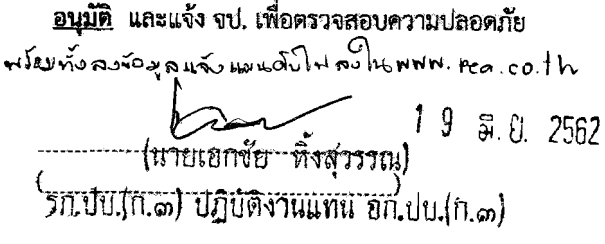 อนุมัติ และแจ้ง จป. เพื่อตรวจสอบความปลอดภัย
พร้อมทั้งลงข้อมูลแจ้งแผนดับไฟ ลงใน www.pea.co.th
19 มิ.ย. 2562
(นายเอกชัย หิ้งสุวรรณ)
รก.ปบ.(ก.๓) ปฏิบัติงานแทน อก.ปบ.(ก.๓)